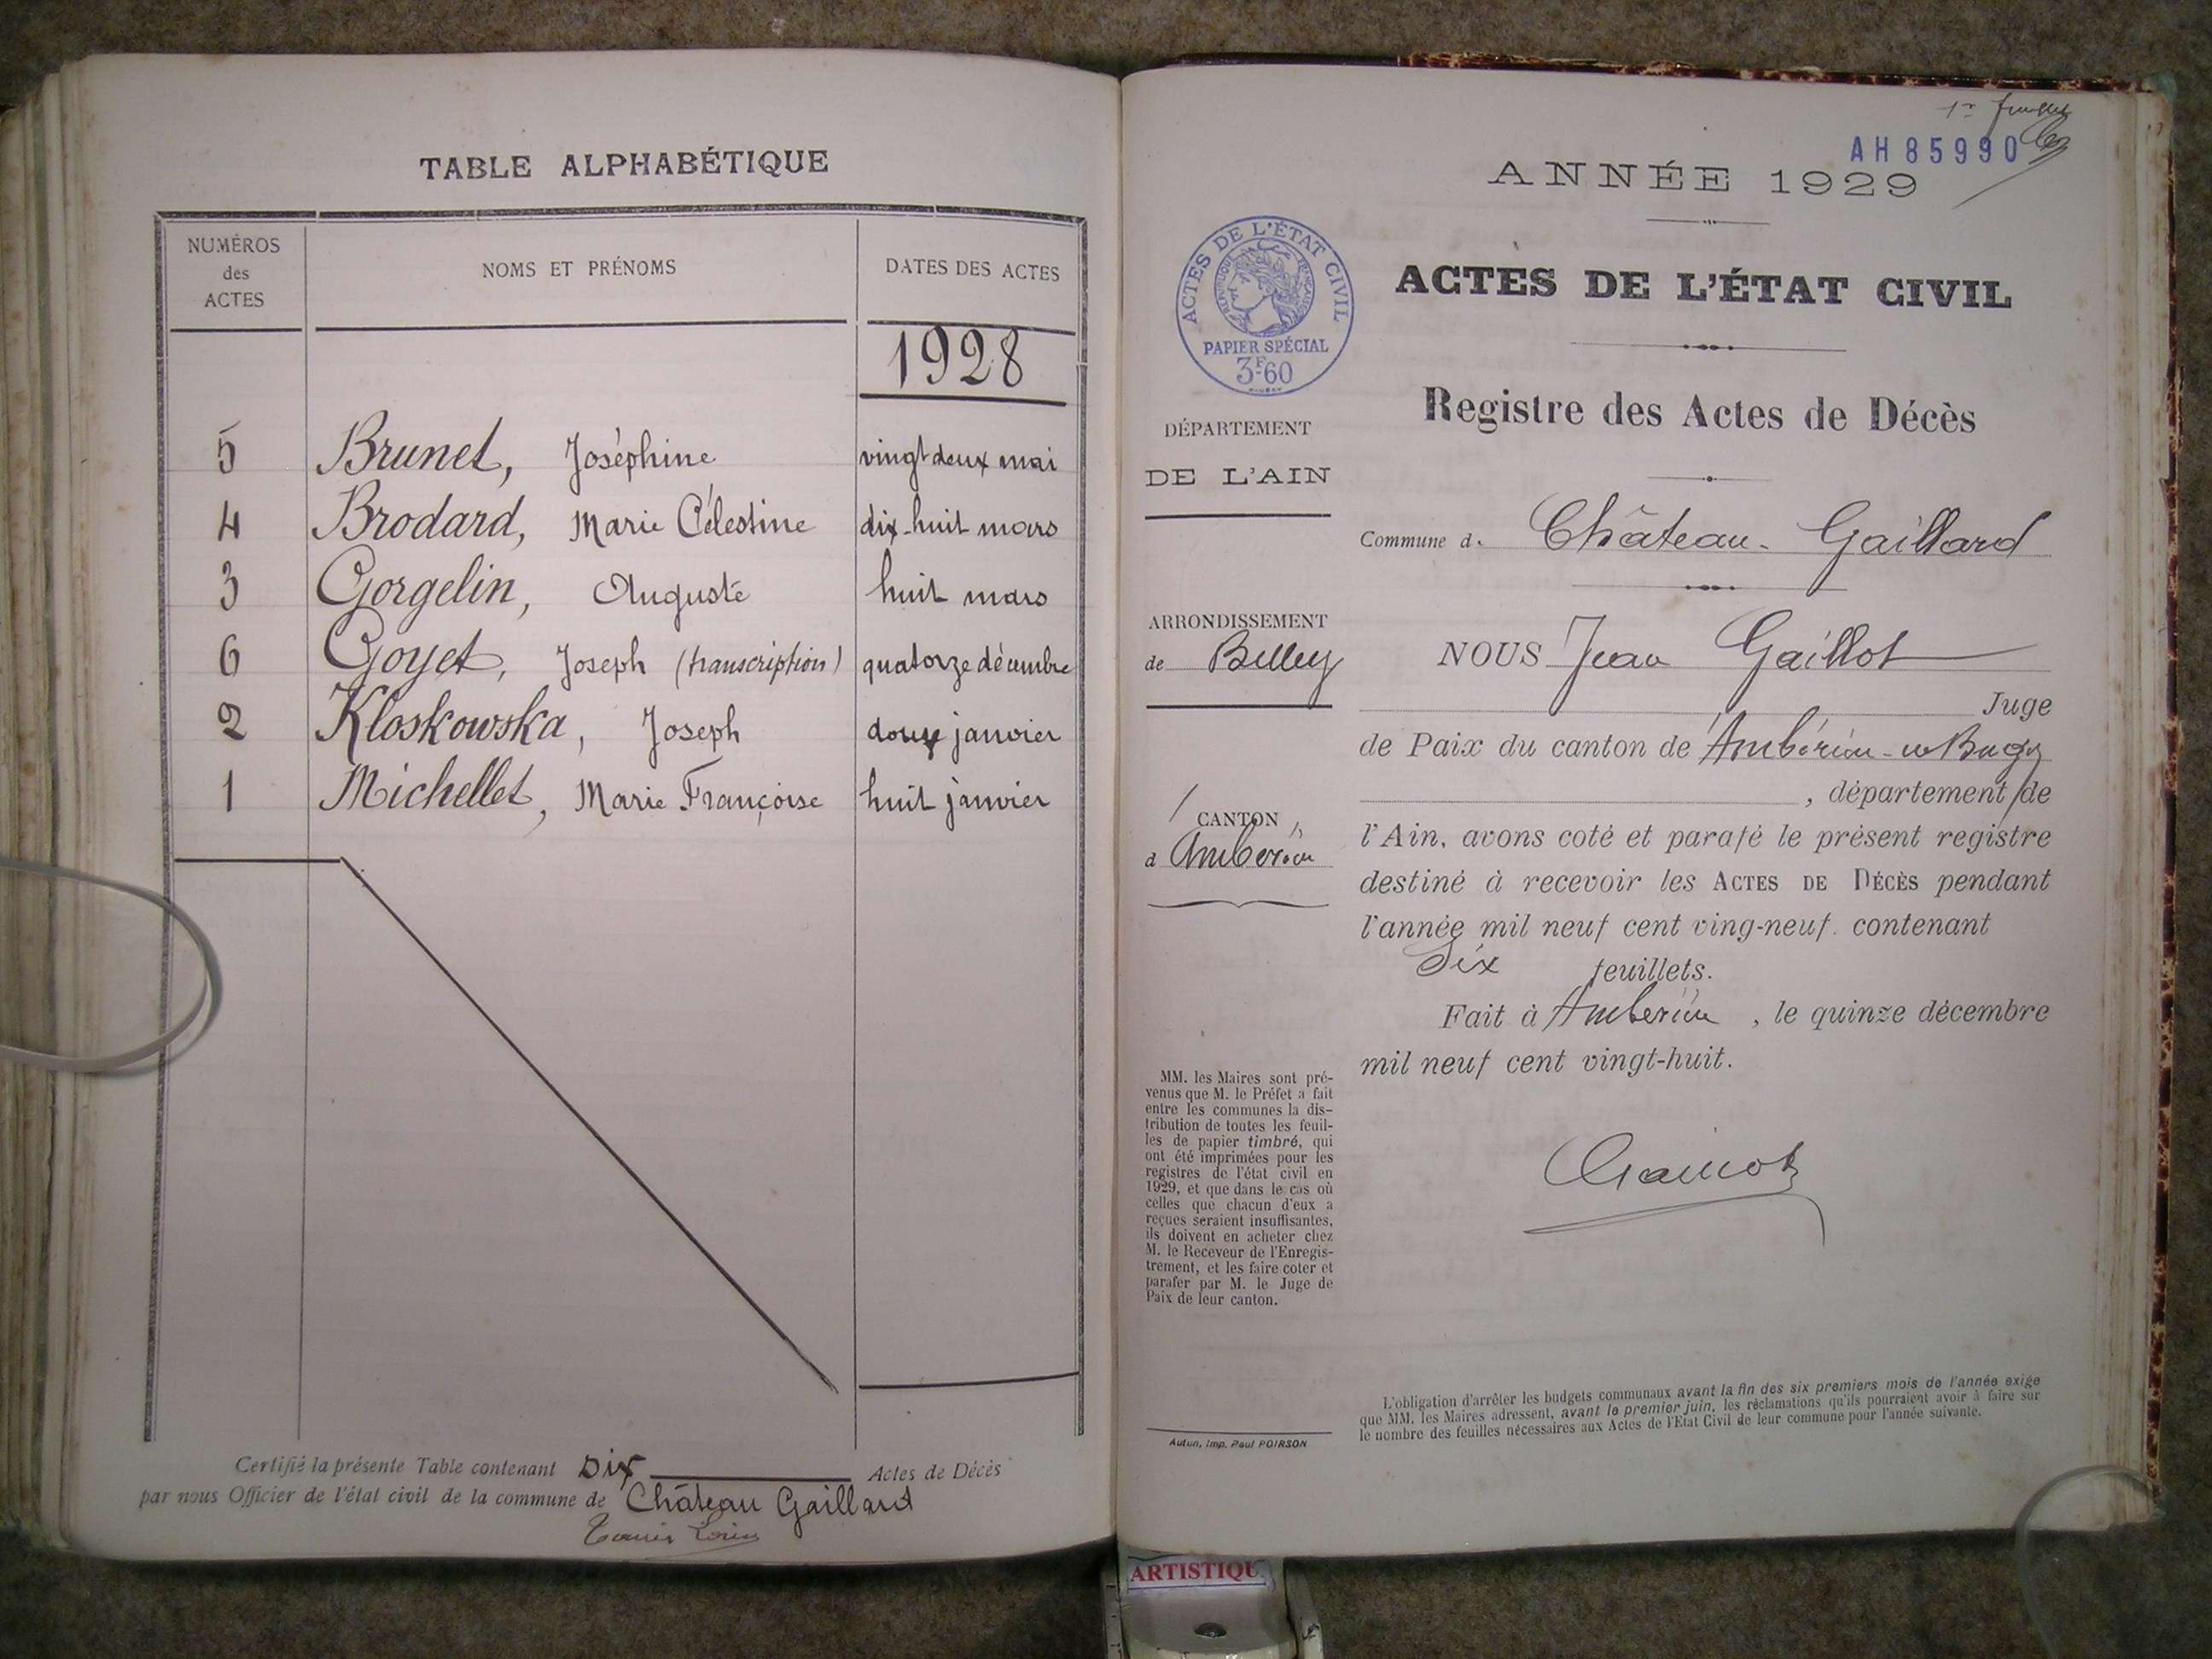 TABLE ALPHABÉTIQUE
NUMÉROS des ACTES
NOMS ET PRÉNOMS
DATES DES ACTES
1928
5 Brunet, Joséphine vingt deux mai
4 Brodard, Marie Célestine dix-huit mars
3 Gorgelin, Auguste huit mars
6 Goyet, Joseph (transcription) quatorze décembre
2 Kloskowska, Joseph douze janvier
1 Michellet, Marie Françoise huit janvier
Certifié la présente Table contenant Dix Actes de Décès
par nous Officier de l'état civil de la commune de Château Gaillard
1er feuillet
AH 85990
ANNÉE 1929
ACTES DE L'ÉTAT CIVIL
RÉPUBLIQUE FRANÇAISE
PAPIER SPÉCIAL
3F60
ACTES DE L'ÉTAT CIVIL
Registre des Actes de Décès
DÉPARTEMENT
DE L'AIN
Commune d. Château-Gaillard
ARRONDISSEMENT
de Belley
CANTON
d'Ambérieu
NOUS Jean Gaillot
Juge
de Paix du canton de Ambérieu-en-Bugey
, département de
l'Ain, avons coté et parafé le présent registre
destiné à recevoir les ACTES DE DÉCÈS pendant
l'année mil neuf cent ving-neuf. contenant
Six feuillets.
Fait à Ambérieu, le quinze décembre
mil neuf cent vingt-huit.
Gaillot
MM. les Maires sont pré-
venus que M. le Préfet a fait
entre les communes la dis-
tribution de toutes les feuil-
les de papier timbré, qui
ont été imprimées pour les
registres de l'état civil en
1929, et que dans le cas où
celles que chacun d'eux a
reçues seraient insuffisantes,
ils doivent en acheter chez
M. le Receveur de l'Enregis-
trement, et les faire coter et
parafer par M. le Juge de
Paix de leur canton.
Autun, Imp. Paul POIRSON
L'obligation d'arrêter les budgets communaux avant la fin des six premiers mois de l'année exige
que MM. les Maires adressent, avant le premier juin, les réclamations qu'ils pourraient avoir à faire sur
le nombre des feuilles nécessaires aux Actes de l'État Civil de leur commune pour l'année suivante.
ARTISTIQU